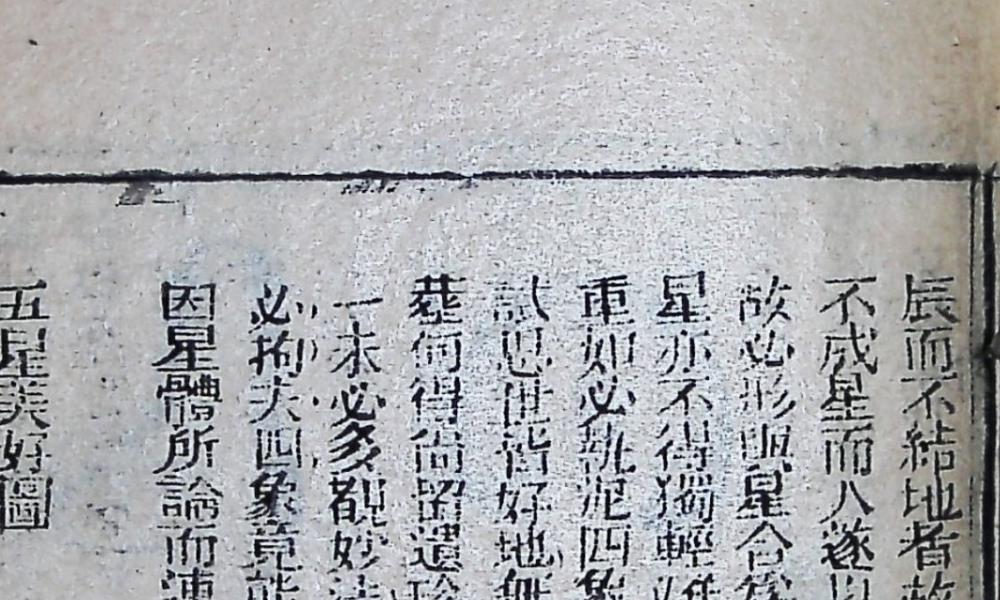 辰而不結地者故
不成星而人遂以
故必形與星合爲
星亦不得獨輕
重如必執泥四象
試思世皆好地無
葬何得尚留遺珍
一未必多観妙法
必拘夫四象竟能
因星體所論而
五星美好圖